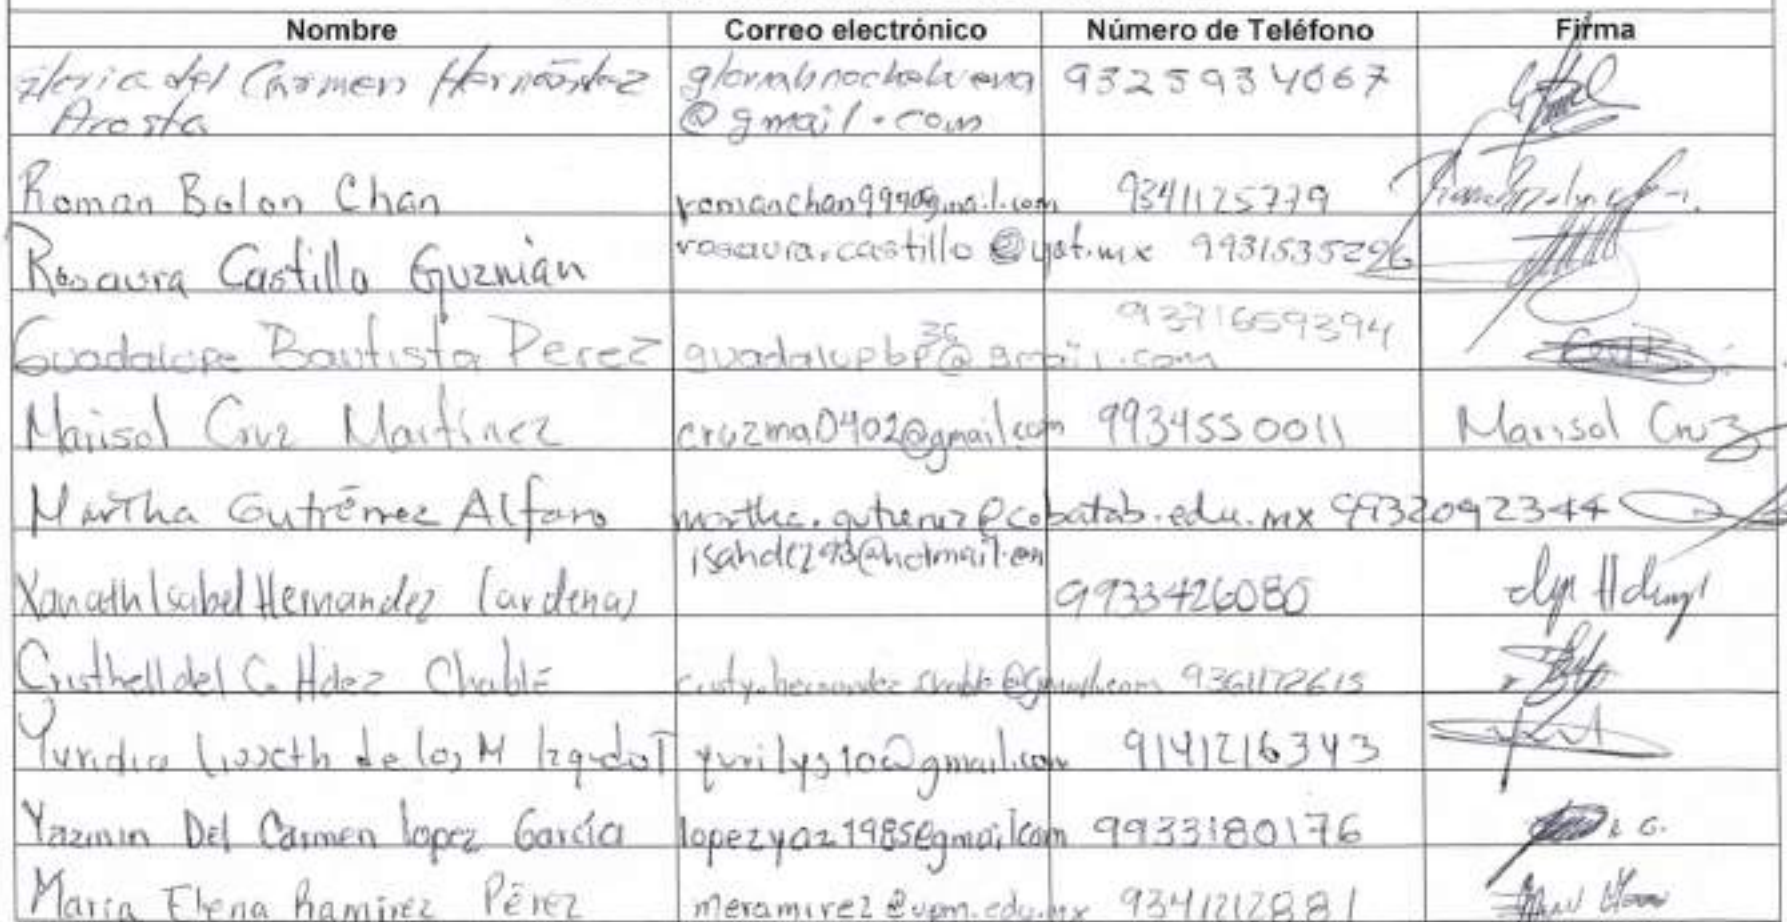 Nombre Correo electrónico Número de Teléfono Firma
del Carmen Hernández 9325934067
Acosta @gmail.com
Roman Bolon Chan romanchan999@gmail.com 9341125779
Rosaura Castillo Guzmán rosaura.castillo @ujat.mx 9931535296
Guadalupe Bautista Perez guadalupbp36@gmail.com 9371659394
Marisol Cruz Martínez cruzma0402@gmail.com 9934550011 Marisol Cruz
Martha Gutiérrez Alfaro @cobatab.edu.mx 9932092344
Xanath Isabel Hernandez Cardenas 9933426080
Cristhell del C. Hdez Chablé 9361172615
Yuridia Lisseth de los M yurilys10@gmail.com 9141216343
Yazmin Del Carmen lopez García lopezyaz1985@gmail.com 9933180176
María Elena Ramírez Pérez meramirez@upm.edu.mx 9341212881